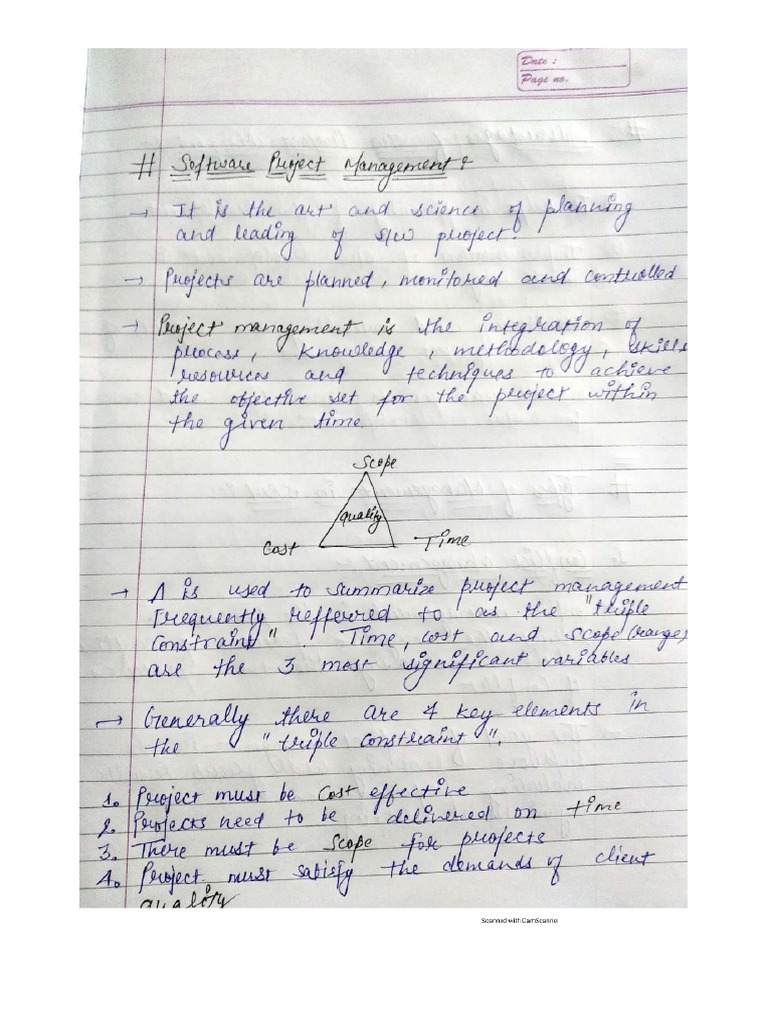 Date :
Page no.
# Software Project Management :
→ It is the art and science of planning
and leading of s/w project.
→ Projects are planned, monitored and controlled
→ Project management is the integration of
process, knowledge, methodology, skills
resources and techniques to achieve
the objective set for the project within
the given time.
Scope
quality
Cost Time
→ Δ is used to summarize project management
Frequently refferred to as the "triple
Constraint". Time, cost and scope (range)
are the 3 most significant variables
→ Generally there are 4 key elements in
the "triple constraint".
1. Project must be Cost effective
2. Projects need to be delivered on time
3. There must be Scope for projects
4. Project must satisfy the demands of client
quality
Scanned with CamScanner